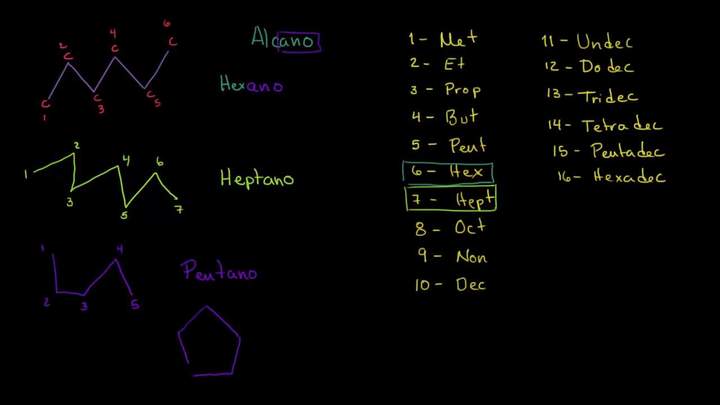 Alcano
Hexano
6
2
4
C
C
C
C
C
C
1
3
5
Heptano
1
2
3
4
5
6
7
Pentano
1
2
3
4
5
1 - Met
2 - Et
3 - Prop
4 - But
5 - Pent
6 - Hex
7 - Hept
8 - Oct
9 - Non
10 - Dec
11 - Undec
12 - Dodec
13 - Tridec
14 - Tetradec
15 - Pentadec
16 - Hexadec